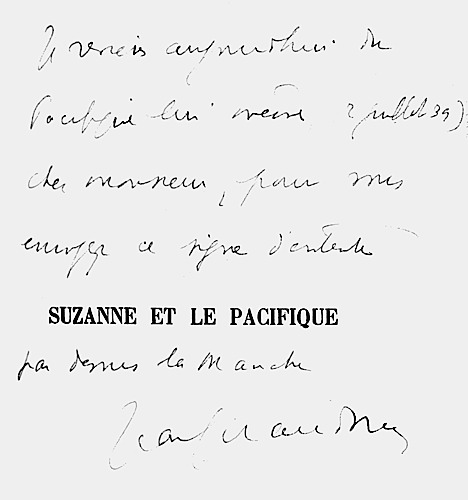 Je reviens aujourd'hui du
Pacifique lui même 2 juillet 39)
cher monsieur, pour vous
envoyer ce signe d'entente
SUZANNE ET LE PACIFIQUE
par dessus la Manche
Jean Giraudoux